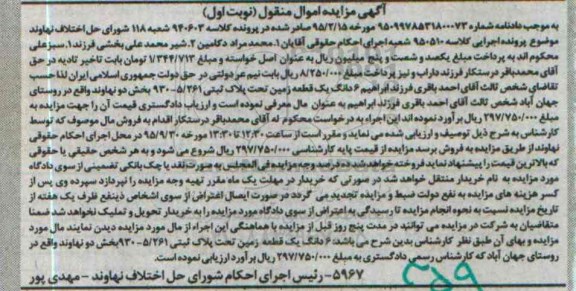 آگهی مزایده اموال منقول (نوبت اول)
به موجب دادنامه شماره ۹۵۰۹۹۷۸۵۳۱۸۰۰۰۷۳ مورخه ۹۵/۲/۱۵ صادر شده در پرونده کلاسه ۹۴۰۶۰۳ شعبه ۱۱۸ شورای حل اختلاف نهاوند
موضوع پرونده اجرایی کلاسه ۹۵۰۵۱۰ شعبه اجرای احکام حقوقی آقایان ۱.محمد مراد دکامین ۲.شیر محمد علی بخشی فرزند ۱.سبزعلی
محکوم اند به پرداخت مبلغ یکصد و شصت و پنج میلیون ریال به عنوان اصل خواسته و مبلغ ۱/۳۴۴/۷۱۳ تومان بابت تاخیر تادیه در حق
آقای محمدباقر درستکار فرزند داراب و نیز پرداخت مبلغ ۸/۲۵۰/۰۰۰ ریال بابت نیم عر دولتی در حق دولت جمهوری اسلامی ایران لذا حسب
تقاضای شخص ثالث آقای احمد باقری فرزند ابراهیم ۶ دانگ یک قطعه زمین تحت پلاک ثبتی ۵/۲۶۱-۹۳۰ بخش دو نهاوند واقع در روستای
جهان آباد شخص ثالث آقای احمد باقری فرزند ابراهیم به عنوان مال معرفی نموده است و ارزیاب دادگستری قیمت آن را جهت مزایده به
مبلغ ۲۹۷/۷۵۰/۰۰۰ ریال برآورد نموده اند این اجراء به درخواست محکوم له آقای محمدباقر درستکار اقدام به فروش مال موصوف که توسط
کارشناس به شرح ذیل توصیف و ارزیابی شده می نماید و مقرر است از ساعت ۱۲:۳۰ تا ۱۳:۳۰ مورخه ۹۵/۹/۳۰ در محل اجرای احکام حقوقی
نهاوند از طریق مزایده به فروش برسد مزایده از قیمت پایه کارشناسی ۲۹۷/۷۵۰/۰۰۰ ریال شروع می شود و به هر شخص حقیقی یا حقوقی
که بالاترین قیمت را پیشنهاد نماید فروخته خواهد شد ده درصد وجه مزایده فی المجلس به صورت نقد یا چک بانکی تضمینی از سوی دادگاه
مورد مزایده به نام خریدار منتقل خواهد شد در صورتی که خریدار در مهلت یک ماه مقرر تهیه وجه مزایده را نپردازد سپرده وی پس از
کسر هزینه های مزایده به نفع دولت ضبط و مزایده تجدید می گردد در صورت ایصال اعتراض از سوی اشخاص ذینفع ظرف یک هفته از
تاریخ مزایده نسبت به نحوه انجام مزایده تا رسیدگی به اعتراض از سوی دادگاه مورد مزایده را به خریدار تحویل و تملیک نخواهد شد ضمنا
متقاضیان به شرکت در مزایده می توانند در مدت پنج روز قبل از مزایده با هماهنگی این اجراء از مال مورد مزایده دیدن نمایند مال مورد
مزایده و بهای آن طبق نظر کارشناس بدین شرح می باشد: ۶ دانگ یک قطعه زمین تحت پلاک ثبتی ۵/۲۶۱-۹۳۰ بخش دو نهاوند واقع در
روستای جهان آباد که کارشناس رسمی دادگستری به مبلغ ۲۹۷/۷۵۰/۰۰۰ ریال برآورد ارزیابی نموده است.
۵۹۶۷- رئیس اجرای احکام شورای حل اختلاف نهاوند - مهدی پور